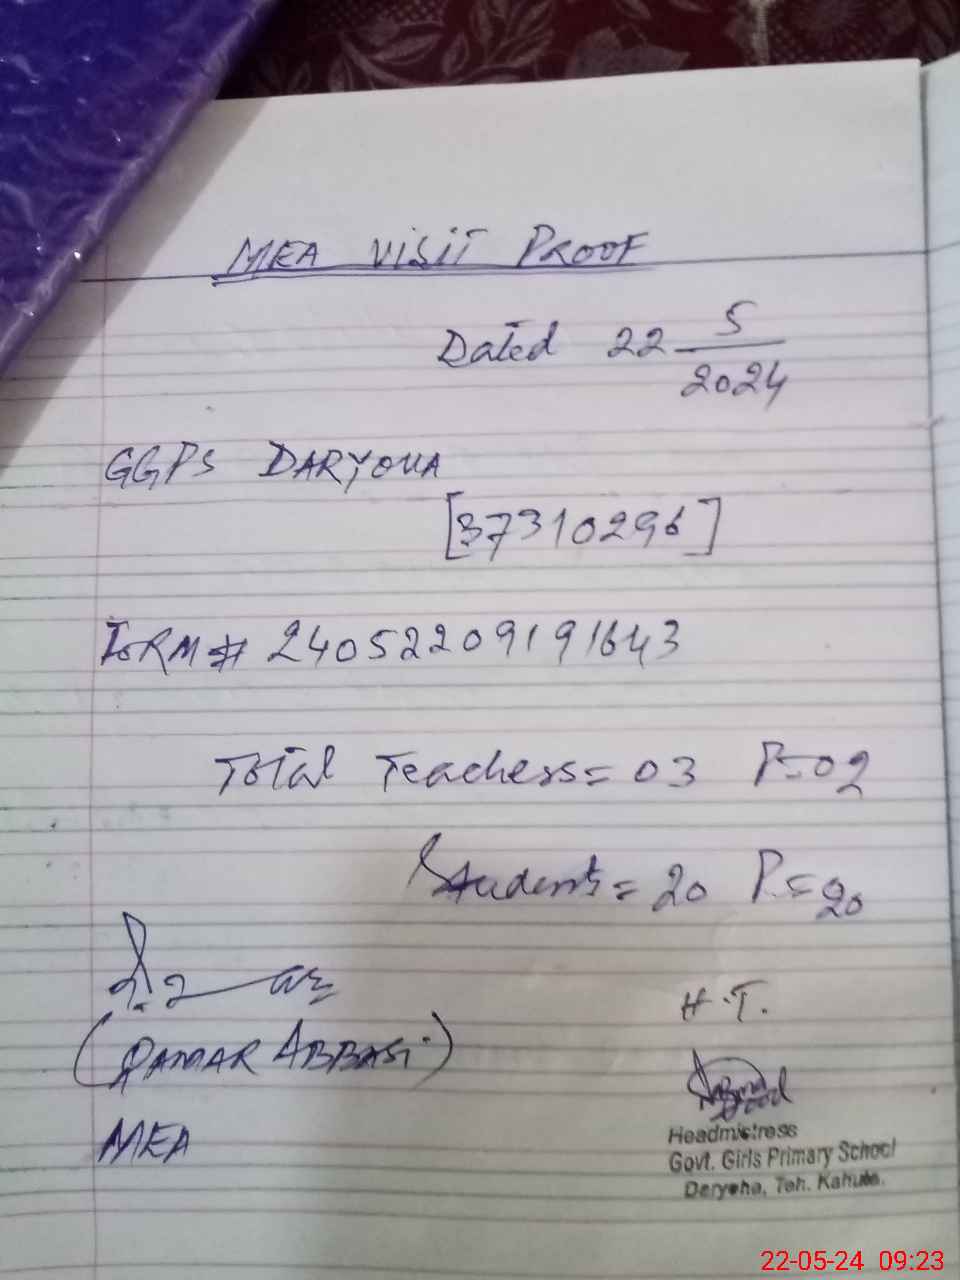 MEA VISIT PROOF
Dated 22 5/2024
GGPS DARYOHA
[37310296]
IoRM# 24052209191643
Total Teachers = 03 P=02
Students = 20 P.=20
(QAMAR ABBASI)
MEA
H.T.
Headmistress
Govt. Girls Primary School
Deryoha, Teh. Kahuta.
22-05-24 09:23